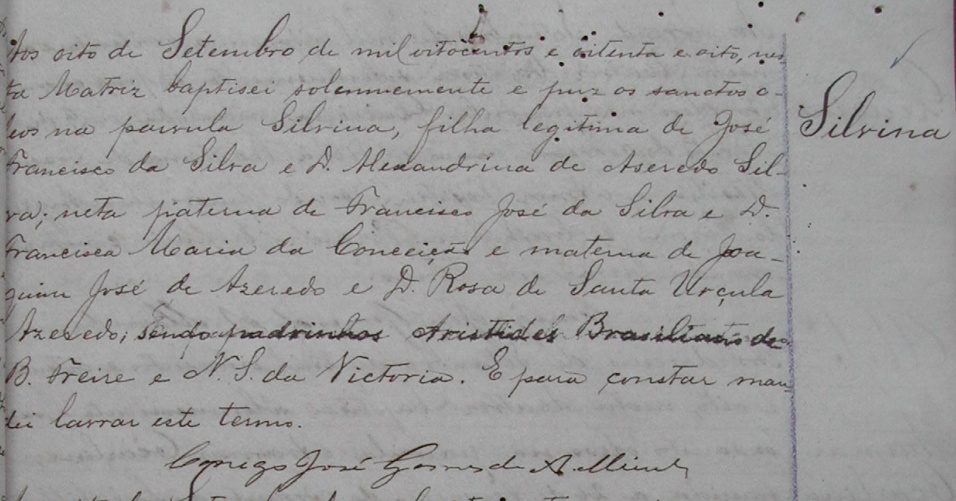 Aos oito de Setembro de mil oitocentos e oitenta e oito, nes-
ta Matriz baptisei solennemente e puz os sanctos o-
leos na parvula Silvina, filha legitima de José
Francisco da Silva e D. Alexandrina de Aseredo Sil-
va; neta paterna de Francisco José da Silva e D.
Francisca Maria da Conceição e materna de Joa-
quim José de Azeredo e D. Rosa de Santa Urçula
Azeredo; sendo padrinhos Aristides Brasiliano de
B. Freire e N. S. da Victoria. E para constar man-
dei lavrar este termo.
Conego José Gomes de
Silvina